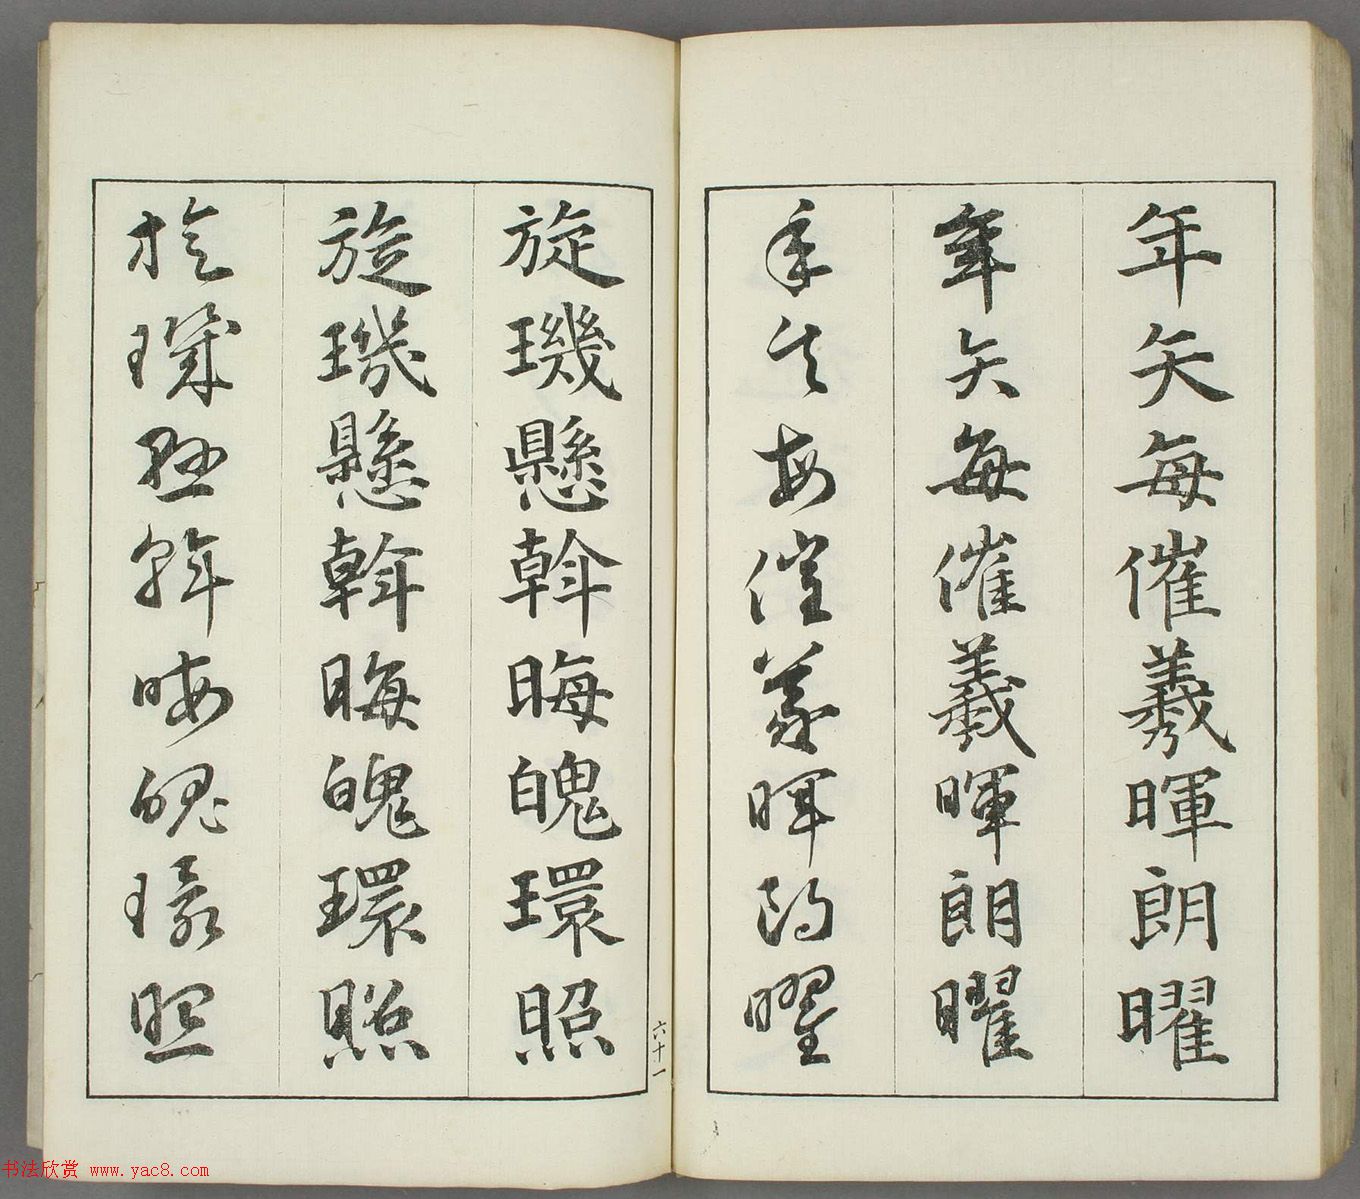 年矢每催羲暉朗曜
年矢每催羲暉朗曜
年矢每催羲暉朗曜
旋璣懸斡晦魄環照
旋璣懸斡晦魄環照
旋璣懸斡晦魄環照
六十一
书法欣赏 www.yac8.com